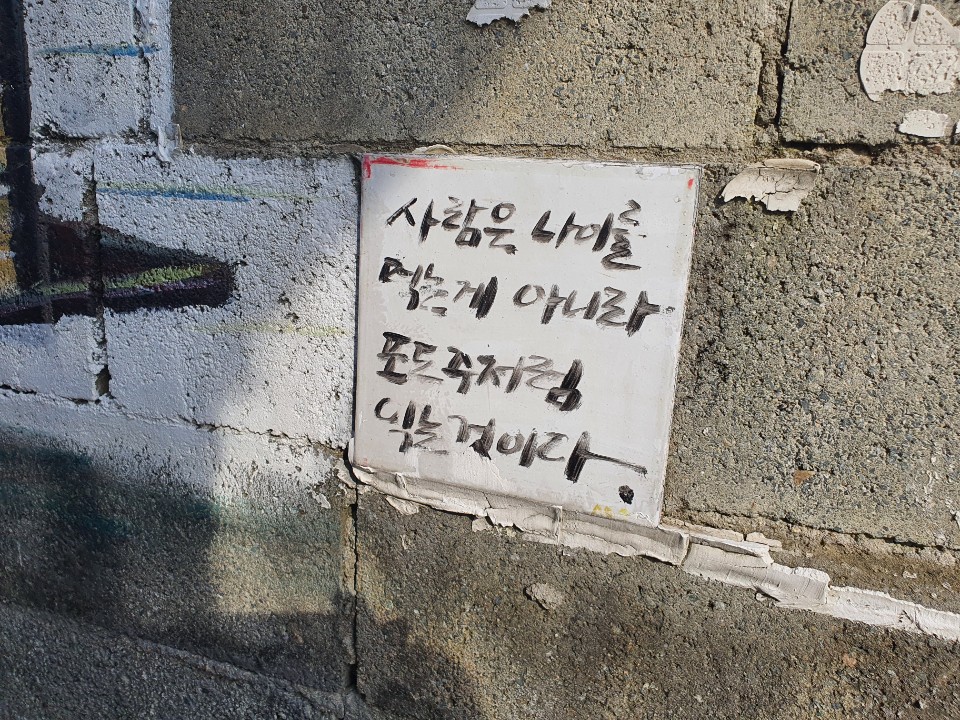 사람은 나이를
먹는게 아니라
포도주처럼
익는것이다.